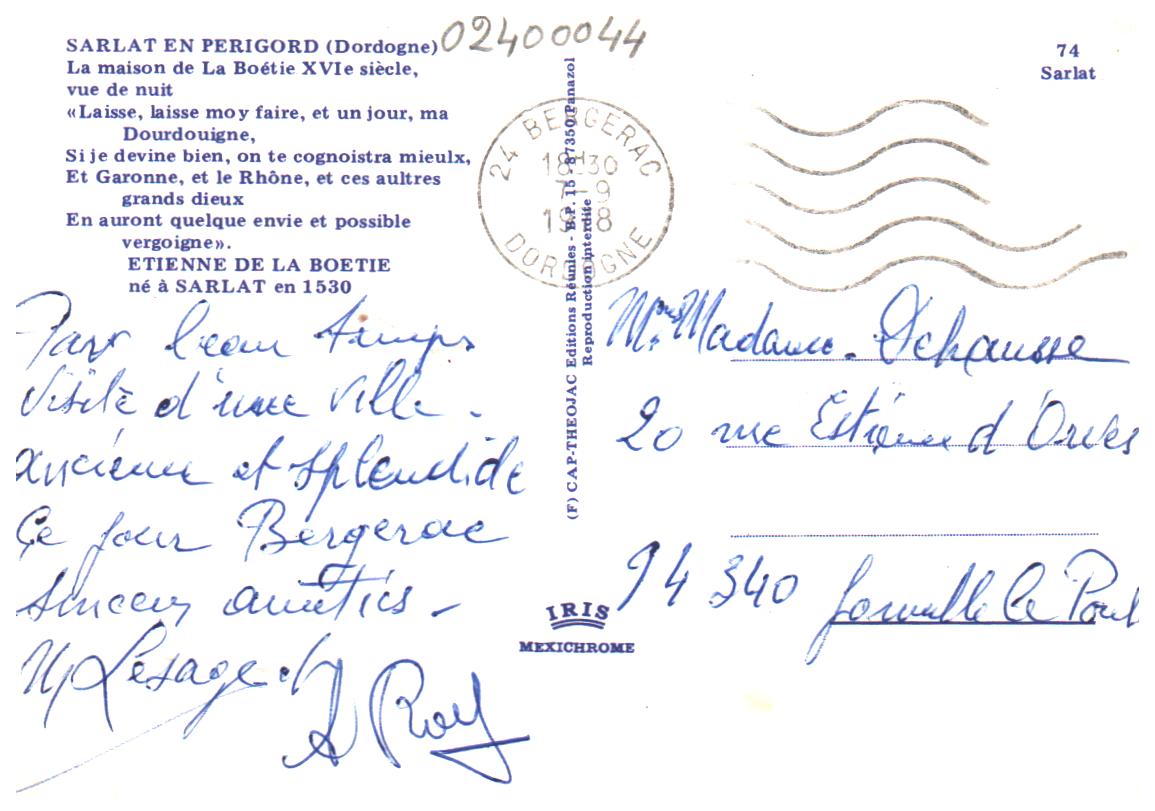 SARLAT EN PERIGORD (Dordogne)
La maison de La Boétie XVIe siècle,
vue de nuit
«Laisse, laisse moy faire, et un jour, ma
Dourdouigne,
Si je devine bien, on te cognoistra mieulx,
Et Garonne, et le Rhône, et ces aultres
grands dieux
En auront quelque envie et possible
vergoigne».
ETIENNE DE LA BOETIE
né à SARLAT en 1530
02400044
74
Sarlat
24 BERGERAC
18H30
7-9
19 8
DORDOGNE
(F) CAP-THEOJAC Editions Réunies - B.P. 15 - 87350 Panazol
Reproduction interdite
Par beau temps
visite d'une ville -
ancienne et splendide
Ce jour Bergerac
sincères amitiés -
Lesage et
A Roy
Madame Dechausse
20 rue Estienne d'Orves
94 340 Joinville le Pont
IRIS
MEXICHROME